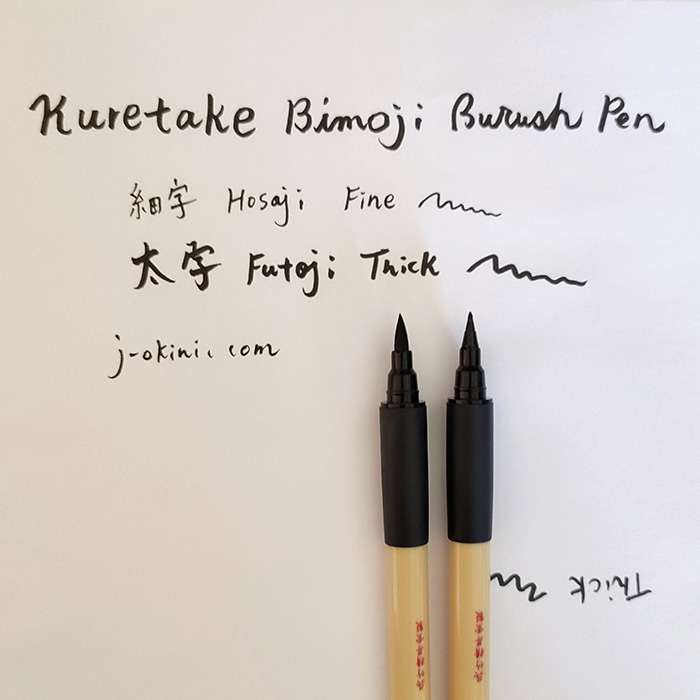 Kuretake Bimoji Burush Pen
細字 Hosoji Fine
太字 Futoji Thick
j-okini.com
Thick
呉竹精昇堂製
呉竹精昇堂製